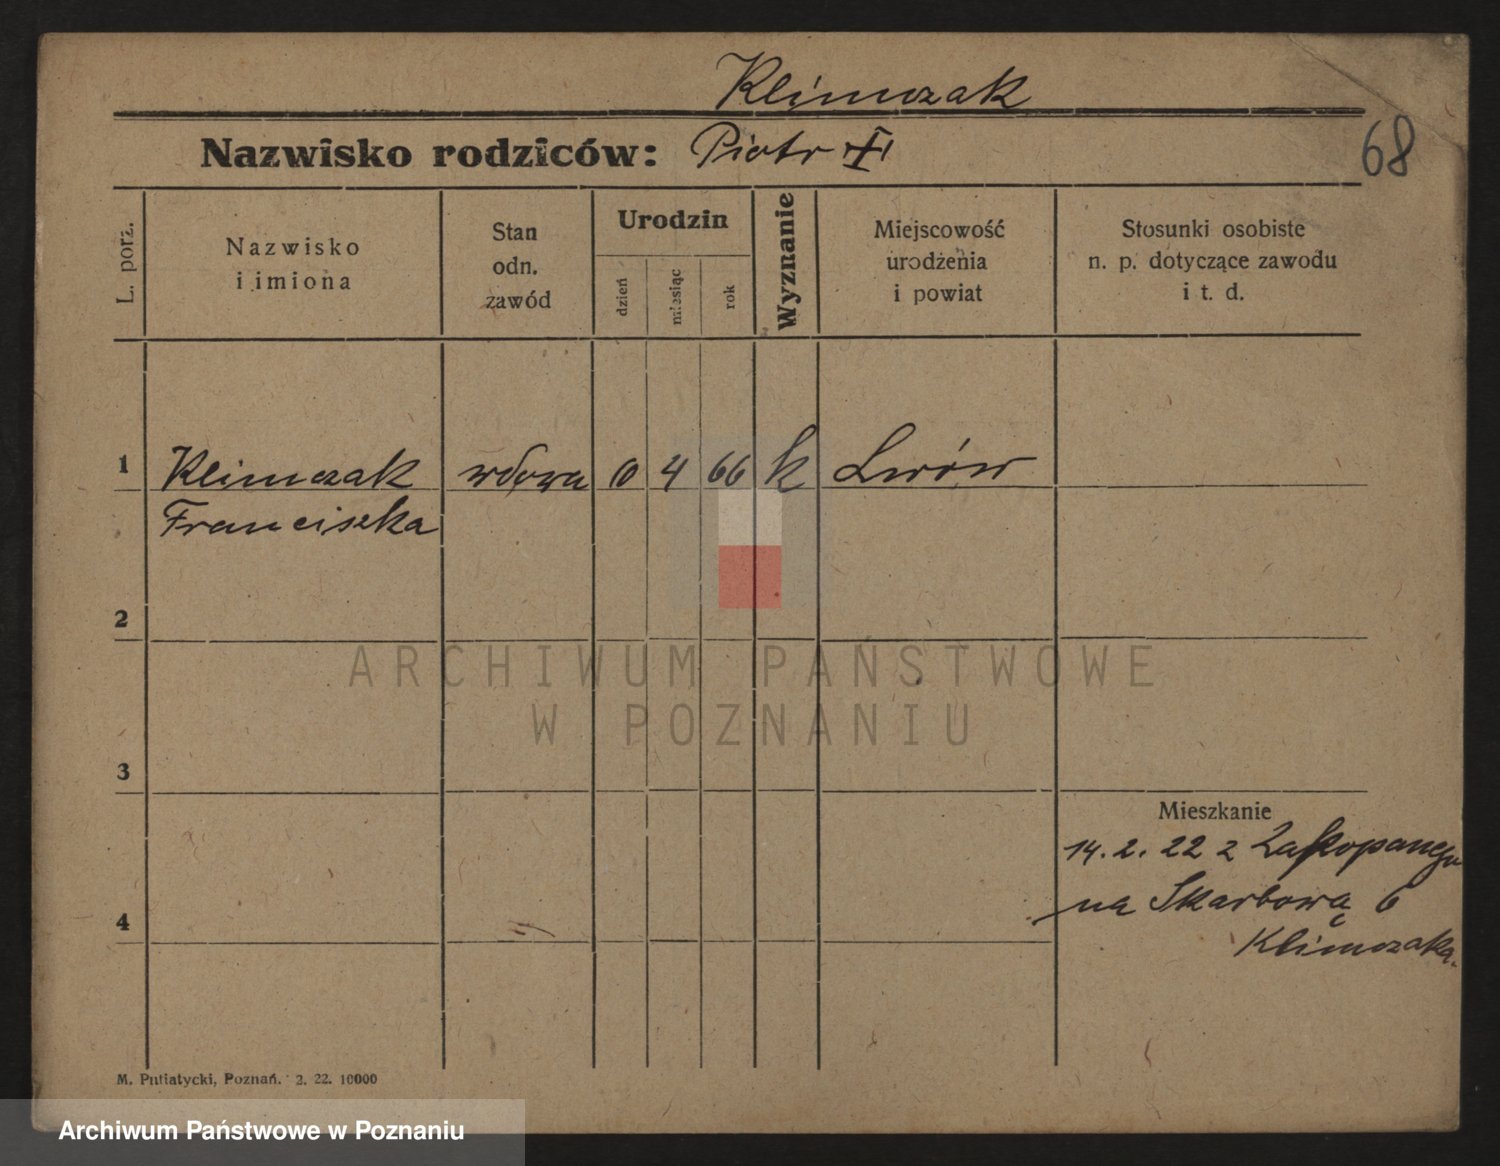 Klimczak
Nazwisko rodziców: Piotr
68
L. porz.
Nazwisko
i imiona
Stan
odn.
zawód
Urodzin
dzień
miesiąc
rok
Wyznanie
Miejscowość
urodzenia
i powiat
Stosunki osobiste
n. p. dotyczące zawodu
i t. d.
1 Klimczak wdowa 4 66 k Lwów
Franciszka
2
ARCHIWUM PAŃSTWOWE
W POZNANIU
3
Mieszkanie
14. 2. 22 z Zakopanego
4
na Skarbową 6
Klimczaka.
M. Putiatycki, Poznań. 2. 22. 10000
Archiwum Państwowe w Poznaniu